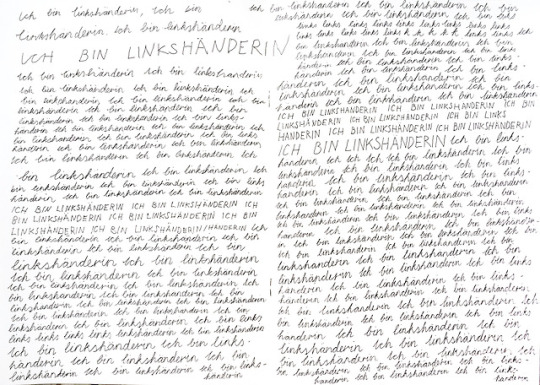 ich bin linkshänderin, ich bin
linkshänderin. ich bin linkshänderin
ICH BIN LINKSHÄNDERIN
ich bin linkshänderin ich bin linkshänderin
ich bin linkshänderin ich bin linkshänderin ich
bin linkshänderin ich bin linkshänderin ich bin
linkshänderin ich bin linkshänderin ich bin
linkshänderin ich bin linkshänderin ich bin links-
händerin ich bin linkshänderin ich bin linkshänderin ich
bin linkshänderin ich bin linkshänderin ich bin
händerin ich bin linkshänderin ich bin linkshänderin
ich bin linkshänderin ich bin linkshänderin ich
bin linkshänderin ich bin linkshänderin ich bin
bin linkshänderin ich bin linkshänderin ich bin
linkshänderin, ich bin linkshänderin ich bin linkshänderin
ICH BIN LINKSHÄNDERIN ICH BIN LINKSHÄNDERIN ICH
BIN LINKSHÄNDERIN ICH BIN LINKSHÄNDERIN ICH BIN
LINKSHÄNDERIN ICH BIN LINKSHÄNDERIN/HÄNDERIN ich
bin linkshänderin ich bin linkshänderin ich bin
linkshänderin ich bin linkshänderin ich bin
linkshänderin ich bin linkshänderin
ich bin linkshänderin ich bin linkshänderin
ich bin linkshänderin ich bin linkshänderin ich
bin linkshänderin, ich bin linkshänderin ich bin
linkshänderin ich bin linkshänderin ich bin linkshänderin
ich bin linkshänderin ich bin linkshänderin ich
bin linkshänderin ich bin linkshänderin ich bin links
links links links links, links linkshänderin ich bin linkshänderin
ich bin linkshänderin ich bin links-
händerin ich bin linkshänderin ich bin
linkshänderin ich bin linkshänderin ich bin links-
händerin
ich bin linkshänderin ich bin linkshänderin ich bin
linkshänderin ich bin linkshänderin ich bin links
links links links links links links links
links links links links links links
bin linkshänderin ich bin linkshänderin ich bin
linkshänderin ich bin linkshänderin ich bin links
händerin ich bin linkshänderin ich bin links-
händerin ich bin linkshänderin ich bin
linkshänderin ich bin linkshänderin ich bin
händerin ich bin linkshänderin, ich bin linkshänderin
ICH BIN LINKSHÄNDERIN ICH BIN LINKSHÄNDERIN ICH BIN
LINKSHÄNDERIN ICH BIN LINKSHÄNDERIN ICH BIN LINKS
HÄNDERIN ICH BIN LINKSHÄNDERIN ICH BIN LINKSHÄNDERIN
ICH BIN LINKSHÄNDERIN ich bin links-
händerin ich ich ich ich bin linkshänderin, ich bin
linkshänderin ich bin linkshänderin ich bin links
händerin. ich bin linkshänderin ich bin
händerin ich bin linkshänderin ich bin linkshänderin
linkshänderin ich bin linkshänderin ich bin
ich bin linkshänderin ich bin linkshänderin
linkshänderin ich bin linkshänderin ich bin links
händerin ich bin linkshänderin ich bin linkshänderin
ich bin linkshänderin ich bin linkshänderin ich
bin linkshänderin ich bin linkshänderin ich bin
linkshänderin ich bin linkshänderin ich bin
linkshänderin ich bin linkshänderin ich bin links-
händerin ich bin linkshänderin ich bin linkshänderin
ich bin linkshänderin ich bin linkshänderin ich
bin linkshänderin ich bin linkshänderin ich bin
händerin ich bin linkshänderin ich bin
linkshänderin ich bin linkshänderin ich bin links-
händerin ich bin linkshänderin ich bin
händerin